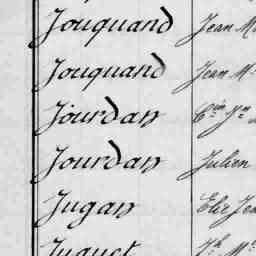 Jouquand Jean M
Jouquand Jean M
Jourdan
Jourdan Julien
Jugan Elie Jea
Juguet